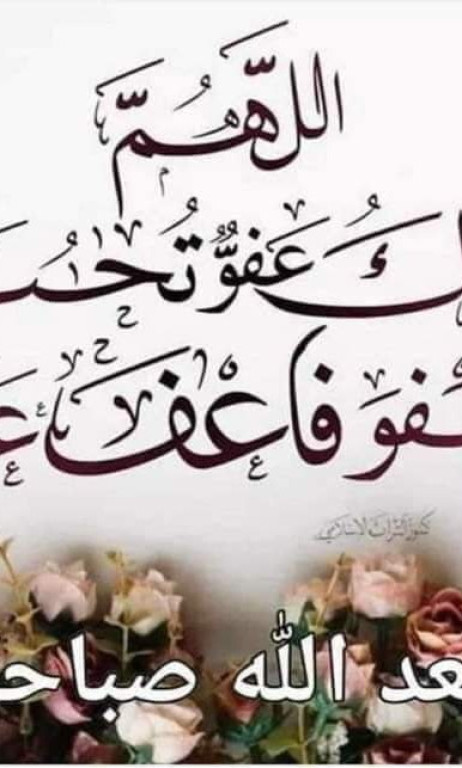 اللَّهُمَّ
ـك عَفُوٌّ تُحِبُّ
ـفْوَ فَاعْفُ عَـ
كنوز التراث الإسلامي
ـعد الله صباحـ